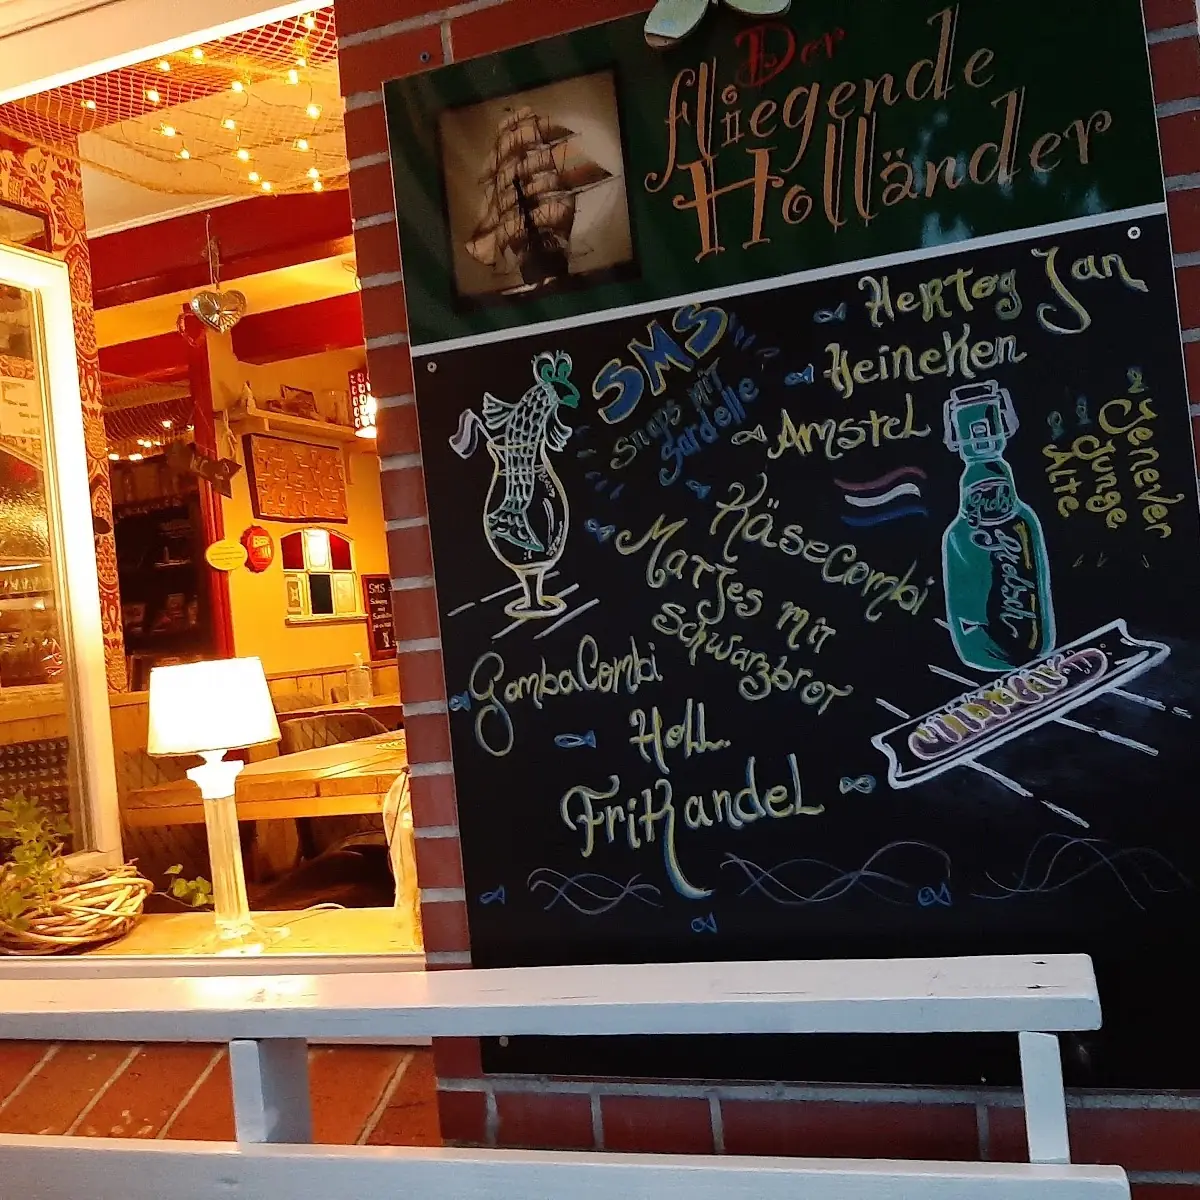 Der
fliegende
Holländer
SMS
Snaps mit
Sardelle
Hertog Jan
Heineken
Amstel
Jenever
Junge
Alte
KäseCombi
Matjes mit
Schwarzbrot
GambaCombi
Holl.
Frikandel
SMS